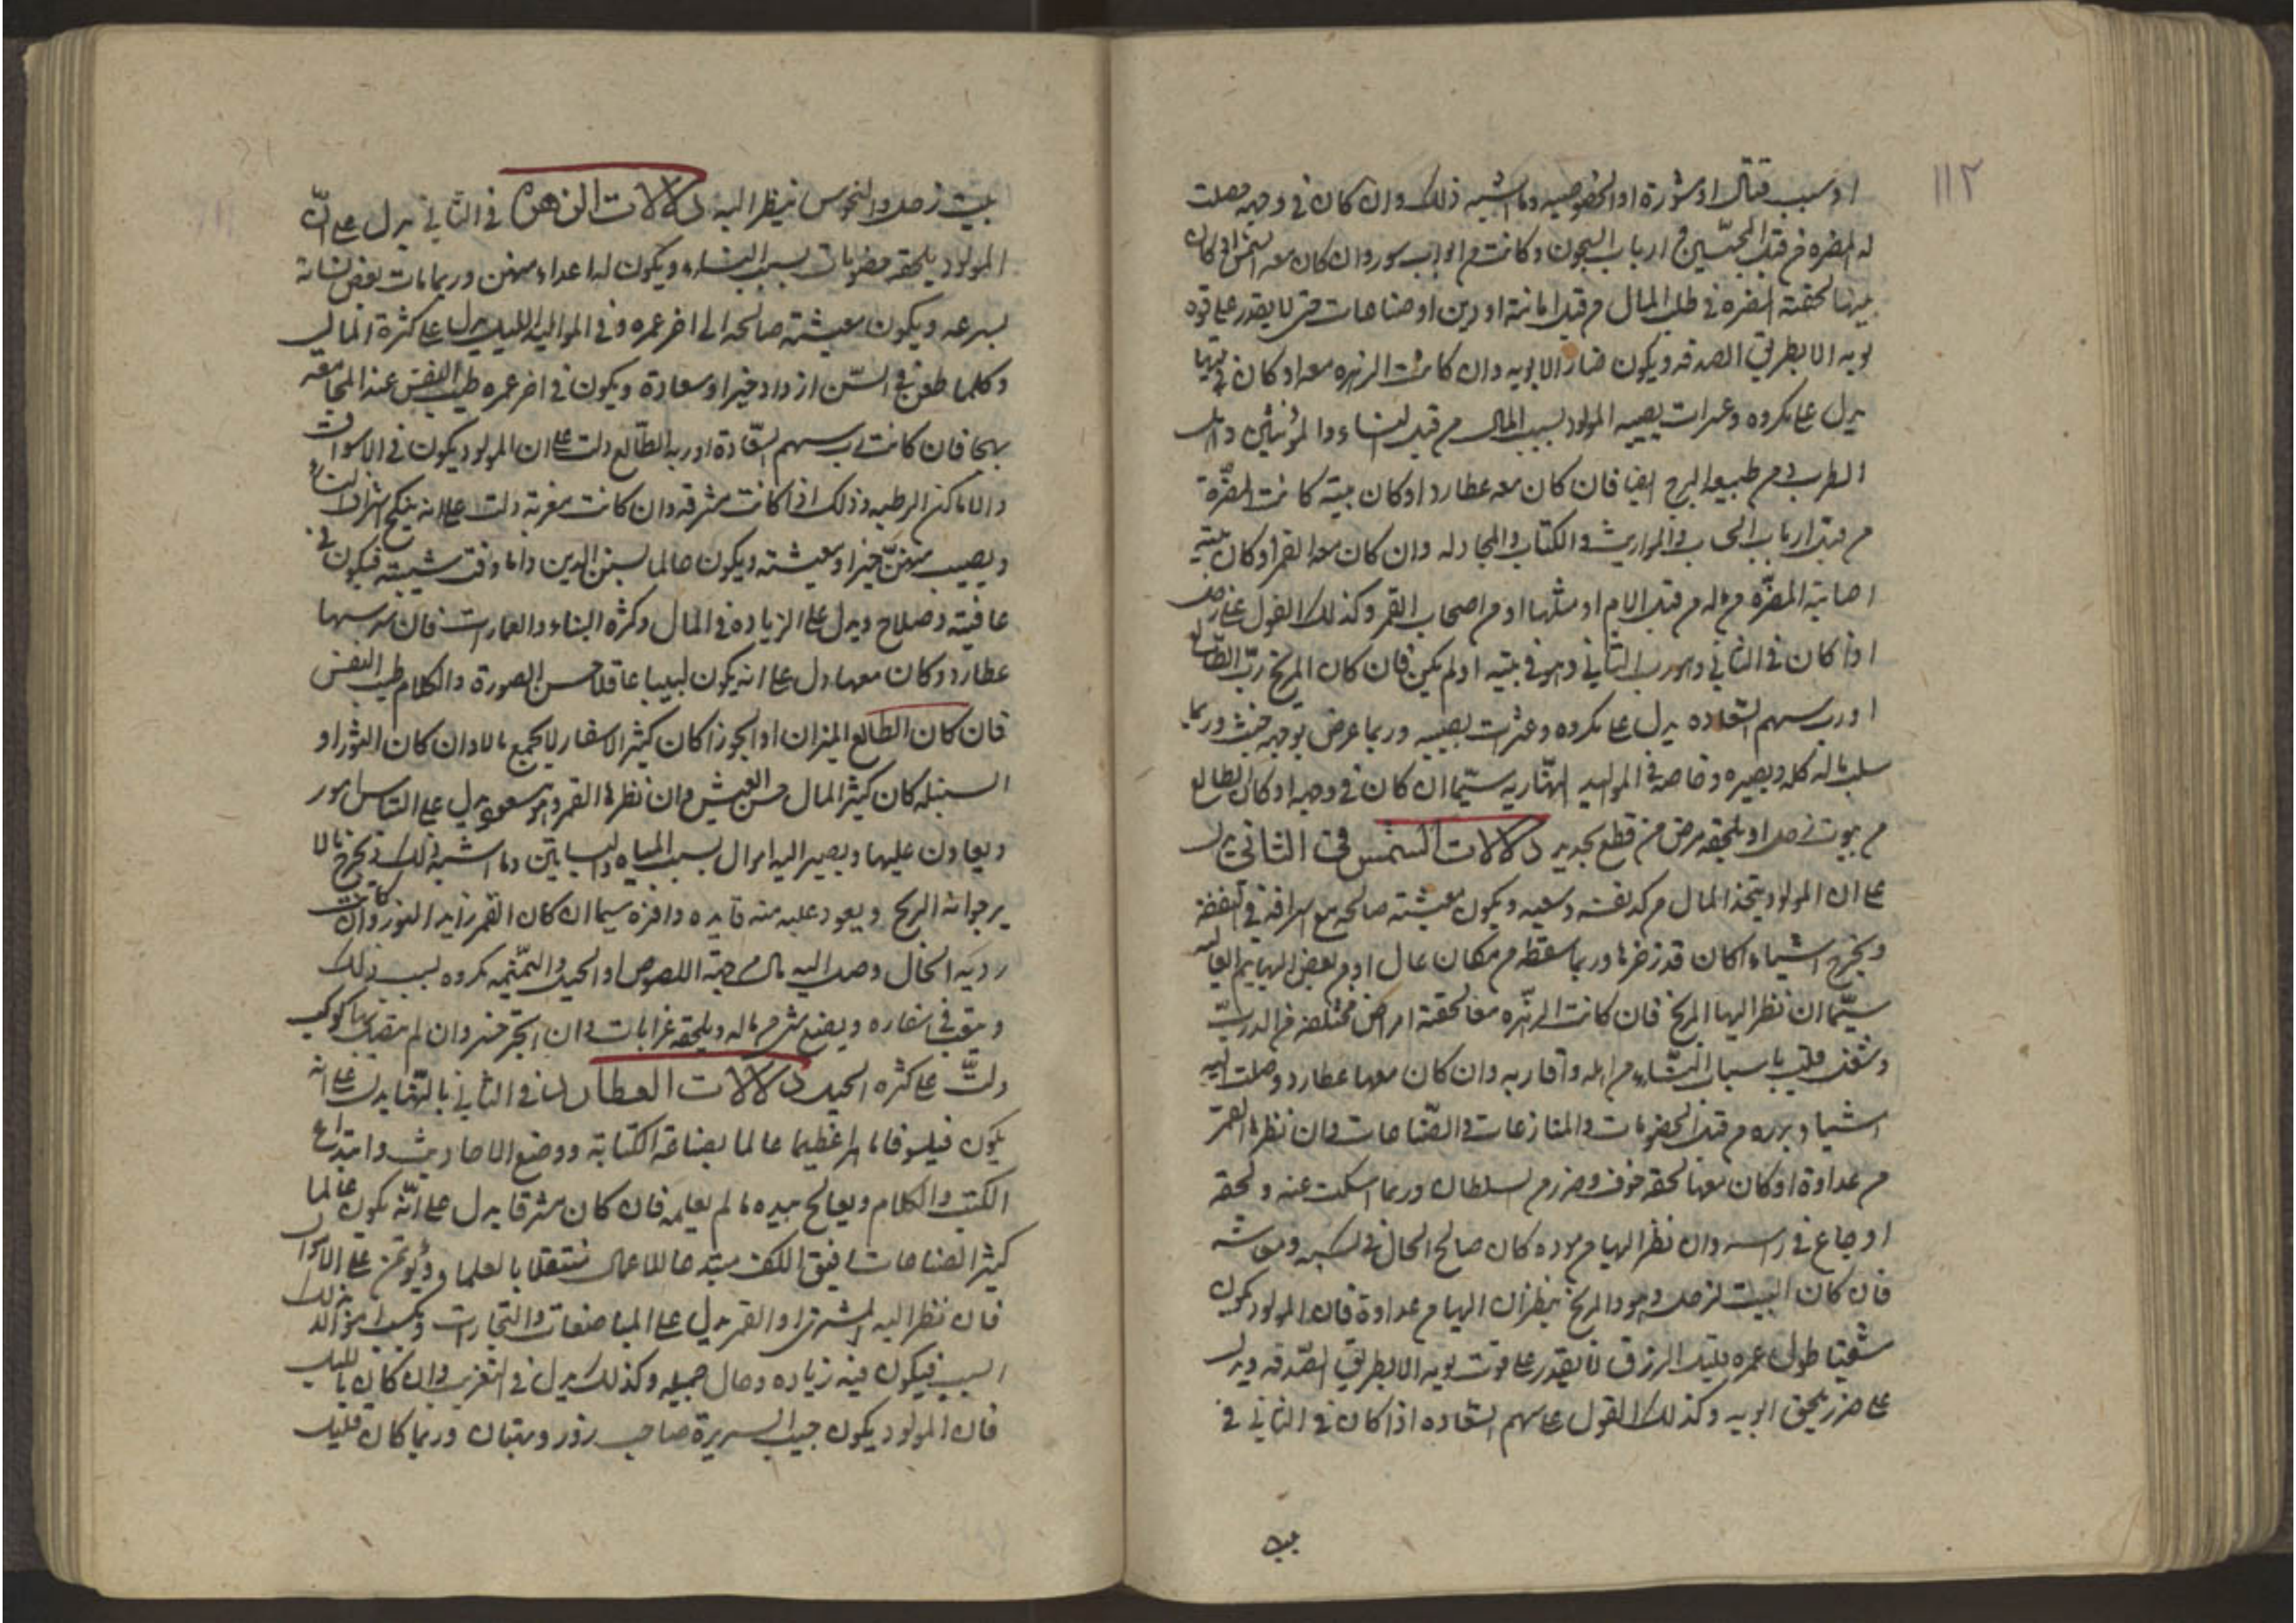 ١١٢
او سبب قتال او شورة او الخصومه وما اشبه ذلك وان كان في وجهه حصلت
له المضره من قبل المحبسين من ارباب السجون وكانت من ابواب سور وان كان معه المشتري او كان
بيتها لحقته المضره في طلب المال من قبل امانة او دين او صناعات حتى لا يقدر على قوة
يومه الا بطريق الصدقه ويكون ضارا لابويه وان كانت الزهره معه او كان في بيتها
يدل على مكروه وعثرات يصيبه المولود بسبب المال من قبل النساء والمؤنثين واهل
الطرب ومن طبيعة البرج ايضا فان كان معه عطارد او كان بيته كانت المضرة
من قبل ارباب الحساب والمواريث والكتاب والمجادله وان كان معه القمر او كان بيته
اصابته المضرة من ماله من قبل الام او مثلها او من اصحاب القمر وكذلك القول على زحل
اذا كان في الثاني وهو رب الثاني وهو في بيته او لم يكن فان كان المريخ رب الطالع
او رب سهم السعاده يدل على مكروه وعثرات يصيبه وربما عرض بوجهه خبث وربما
سلب ماله كله وبصره وخاصة في المواليد النهاريه سيما ان كان في وجهه او كان الطالع
من بيوت زحل او يلحقه مرض من قطع بحديد دلالات الشمس في الثاني يدل
على ان المولود يتخذ المال من كد نفسه وسعيه ويكون معيشته صالحه مع اسرافه في النفقه
ويخرج اشياء كان قد ذخرها وربما سقط من مكان عال او من بعض البهايم العاليه
سيما ان نظر اليها المريخ فان كانت الزهره معها لحقته امراض مختلفه في الدرب
وشغف قلبه باسباب النساء من اهله واقاربه وان كان معها عطارد وصلت اليه
اشياء من قبل الخصومات والمنازعات والصناعات وان نظرها القمر
من عداوة او كان معها لحقه خوف وضرر من السلطان وربما اسكت عنه ولحقه
اوجاع في راسه وان نظر اليها من موده كان صالح الحال في كسبه ومعاشه
فان كان البيت لزحل وهو والمريخ ينظران اليها من عداوة فان المولود يكون
شقيا طول عمره قليل الرزق لا يقدر على قوت يومه الا بطريق الصدقه ويدل
على ضرر يلحق ابويه وكذلك القول على سهم السعاده اذا كان في الثاني في
بيت
بيت زحل والنحوس ينظر اليه دلالات الزهرة في الثاني يدل على ان
المولود يلحقه خصومات بسبب النساء ويكون له اعداء منهن وربما مات بعض نسائه
بسرعه ويكون معيشته صالحه الى اخر عمره وفي المواليد الليليه يدل على كثرة المال
وكلما طعن في السن ازداد خيرا وسعادة ويكون في اخر عمره طيب النفس عند المجامعه
بها فان كانت رب سهم السعادة او رب الطالع دلت على ان المولود يكون في الاسواق
والاماكن الرطبه وذلك اذا كانت مشرقه وان كانت مغربه دلت على انه ينكح اشراف النساء
ويصيب منهن خيرا ومعيشته ويكون عالما بسنن الدين واما وقت شيبته فيكون في
عافيته وصلاح ويدل على الزياده في المال وكثرة البناء والعمارات فان رب سهمها
عطارد وكان معها دل على انه يكون لبيبا عاقلا حسن الصورة والكلام طيب النفس
فان كان الطالع الميزان او الجوزا كان كثير الاسفار لا يجمع مالا وان كان الثور او
السنبله كان كثير المال حسن العيش وان نظرها القمر وهو مسعود يدل على التماس امور
ويعاون عليها ويصير اليه اموال بسبب المياه والبساتين وما اشبه ذلك ويخرج مالا
يرجوانه الربح ويعود عليه منه فايده وافرة سيما ان كان القمر زايد النور وان كانت
رديه الحال وصل اليه مال من جهة اللصوص او الحيل والنميمه مكروه بسبب ذلك
ويتعب في اسفاره ويضيع شي من ماله ويلحقه غرامات وان اتجر خسر وان لم يتصل بها كوكب
دلت على كثرة الحيل دلالات العطارد اذا في الثاني بالنهار يدل على انه
يكون فيلسوفا ماهرا عظيما عالما بصناعة الكتابة ووضع الاحاديث وابتداع
الكتب والكلام ويعالج بيده ما لم يعلمه فان كان مشرقا يدل على انه يكون عالما
كثير الصناعات لفيق الكف مبتدعا للاعمال متنقلا بالعلما ويؤتمن على الاموال
فان نظر اليه المشتري او القمر يدل على المباضعات والتجارات ويكسب اموال بذلك
السبب فيكون فيه زياده وحال جميله وكذلك يدل في التغريب وان كان بالليل
فان المولود يكون خبيث السريرة صاحب زور وبهتان وربما كان قليل